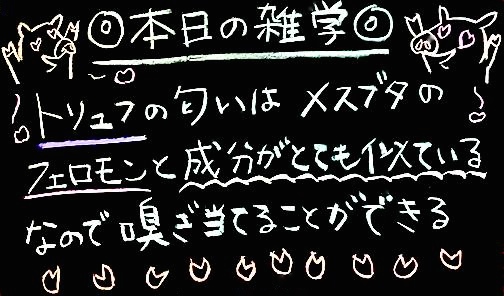 ◎本日の雑学◎
トリュフの匂いはメスブタの
フェロモンと成分がとても似ている
なので嗅ぎ当てることができる